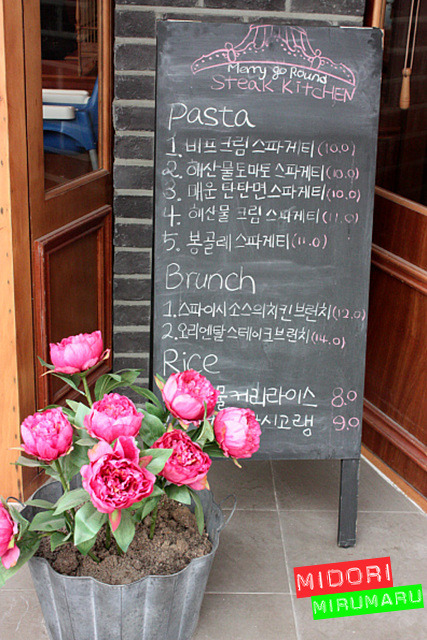 Merry go Round
STEAK KITCHEN
Pasta
1. 비프크림스파게티 (10.0)
2. 해산물토마토스파게티 (10.0)
3. 매운탄탄면스파게티 (10.0)
4. 해산물 크림 스파게티 (11.0)
5. 봉골레스파게티 (11.0)
Brunch
1. 스파이시소스의치킨브런치 (12.0)
2. 오리엔탈스테이크브런치 (14.0)
Rice
물커리라이스 8.0
시고랭 9.0
MIDORI
MIRUMARU